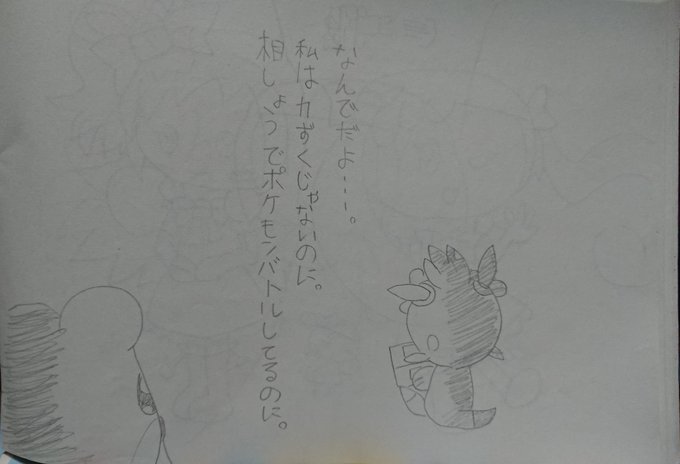 なんでだよ…。
私は力ずくじゃないのに。
相しょうでポケモンバトルしてるのに。